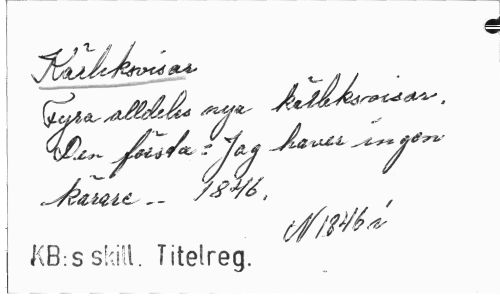 Kärleksvisor
Fyra alldeles nya kärleksvisor.
Den första: Jag haver ingen
kärare -- 1846.
N 1846 i
KB:s skill. Titelreg.